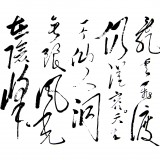 乱云飛渡
仍從容天生
一个仙人洞
無限風光
在險峰